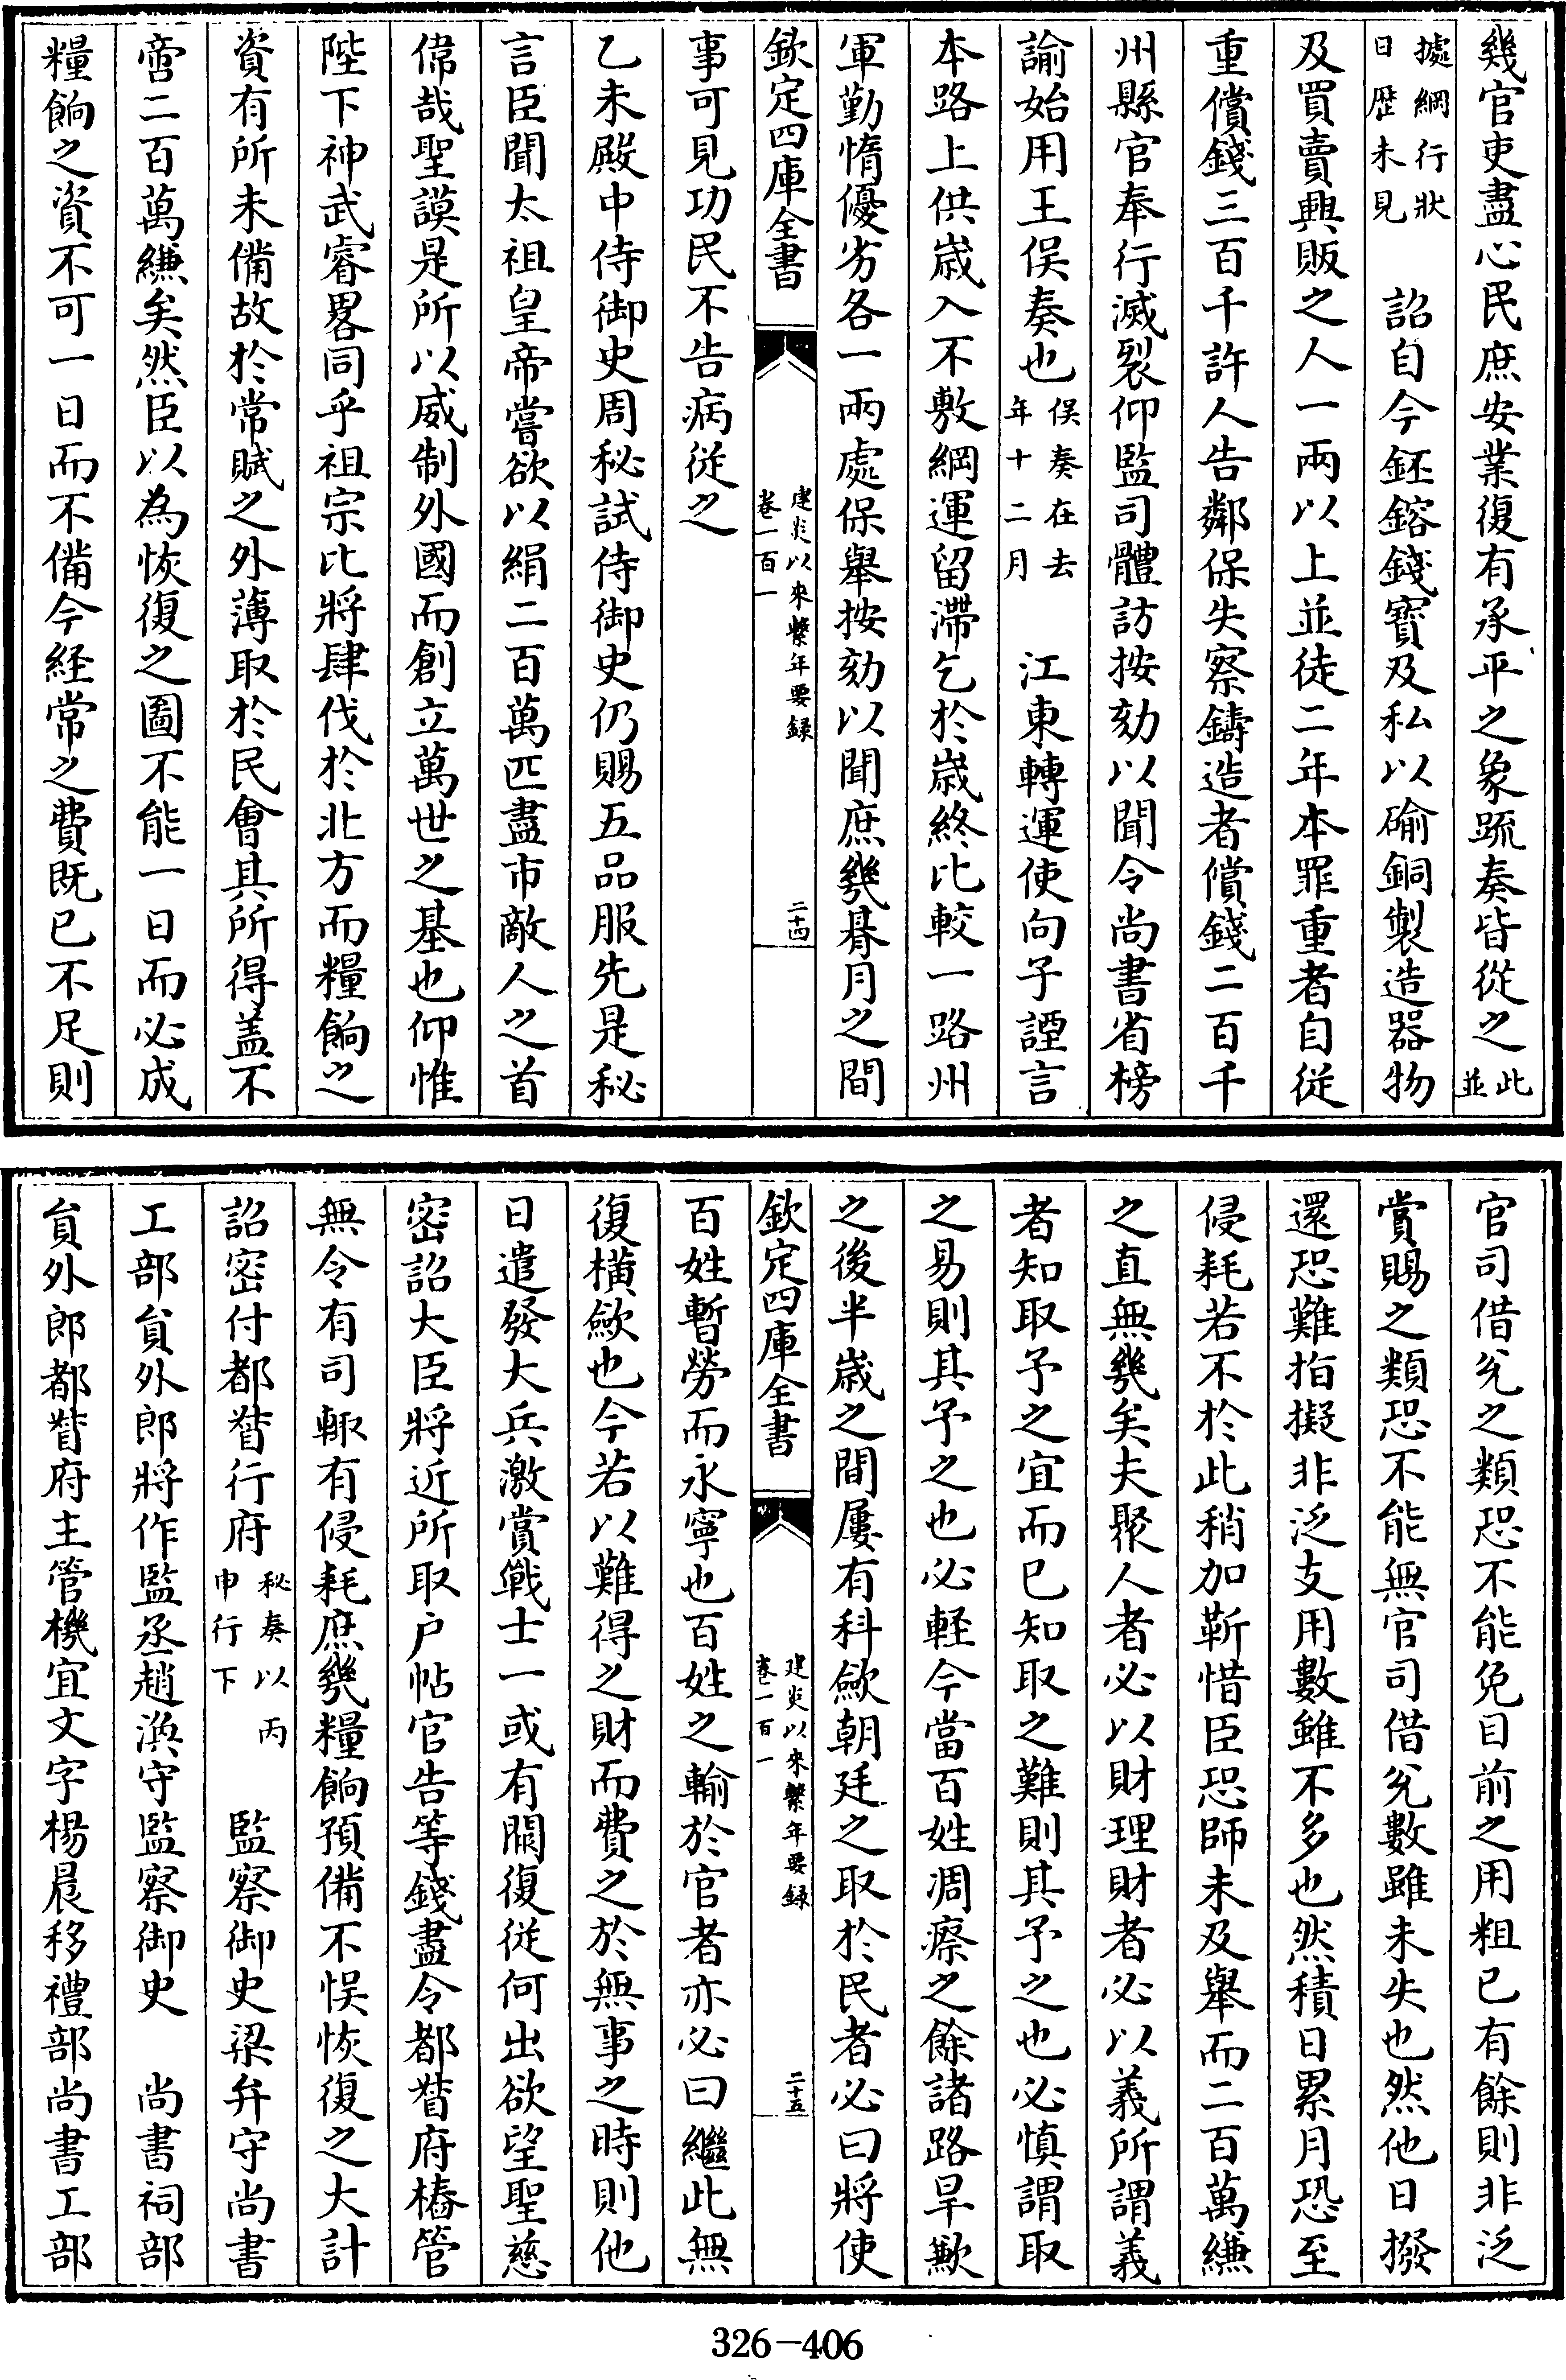 幾官吏盡心民庶安業復有承平之象䟽奏皆從之此並
據綱行狀日歴未見　詔自今鈺鎔錢寳及私以碖銅製造器物
及買賣興販之人一兩以上並徒二年本罪重者自從
重償錢三百千許人告鄰保失察鑄造者償錢二百千
州縣官奉行滅裂仰監司體訪按劾以聞令尚書省榜
諭始用王俁奏也俁奏在去年十二月　江東轉運使向子諲言
本路上供嵗入不敷綱運留滯乞於嵗終比較一路州
軍勤惰優劣各一兩處保舉按劾以聞庶幾朞月之間
欽定四庫全書
建炎以來繫年要録
卷一百一
二十四
事可見功民不告病從之
乙未殿中侍御史周秘試侍御史仍賜五品服先是秘
言臣聞太祖皇帝嘗欲以絹二百萬匹盡市敵人之首
偉哉聖謨是所以威制外國而創立萬世之基也仰惟
陛下神武睿畧同乎祖宗比將肆伐於北方而糧餉之
資有所未備故於常賦之外薄取於民會其所得盖不
啻二百萬縑矣然臣以為恢復之圖不能一日而必成
糧餉之資不可一日而不備今経常之費既已不足則
官司借兊之類恐不能免目前之用粗已有餘則非泛
賞賜之類恐不能無官司借兊數雖未失也然他日撥
還恐難指擬非泛支用數雖不多也然積日累月恐至
侵耗若不於此稍加靳惜臣恐師未及舉而二百萬縑
之直無幾矣夫聚人者必以財理財者必以義所謂義
者知取予之宜而已知取之難則其予之也必慎謂取
之易則其予之也必軽今當百姓凋瘵之餘諸路旱歉
之後半嵗之間屢有科歛朝廷之取於民者必曰將使
欽定四庫全書
建炎以來繫年要録
卷一百一
二十五
百姓暫勞而永寧也百姓之輸於官者亦必曰繼此無
復横歛也今若以難得之財而費之於無事之時則他
日遣發大兵激賞戰士一或有闕復從何出欲望聖慈
密詔大臣將近所取户帖官告等錢盡令都督府樁管
無令有司輙有侵耗庶幾糧餉預備不悮恢復之大計
詔密付都督行府秘奏以丙申行下　監察御史梁弁守尚書
工部貟外郎將作監丞趙渙守監察御史　尚書祠部
貟外郎都督府主管機宜文字楊晨移禮部尚書工部
326-406